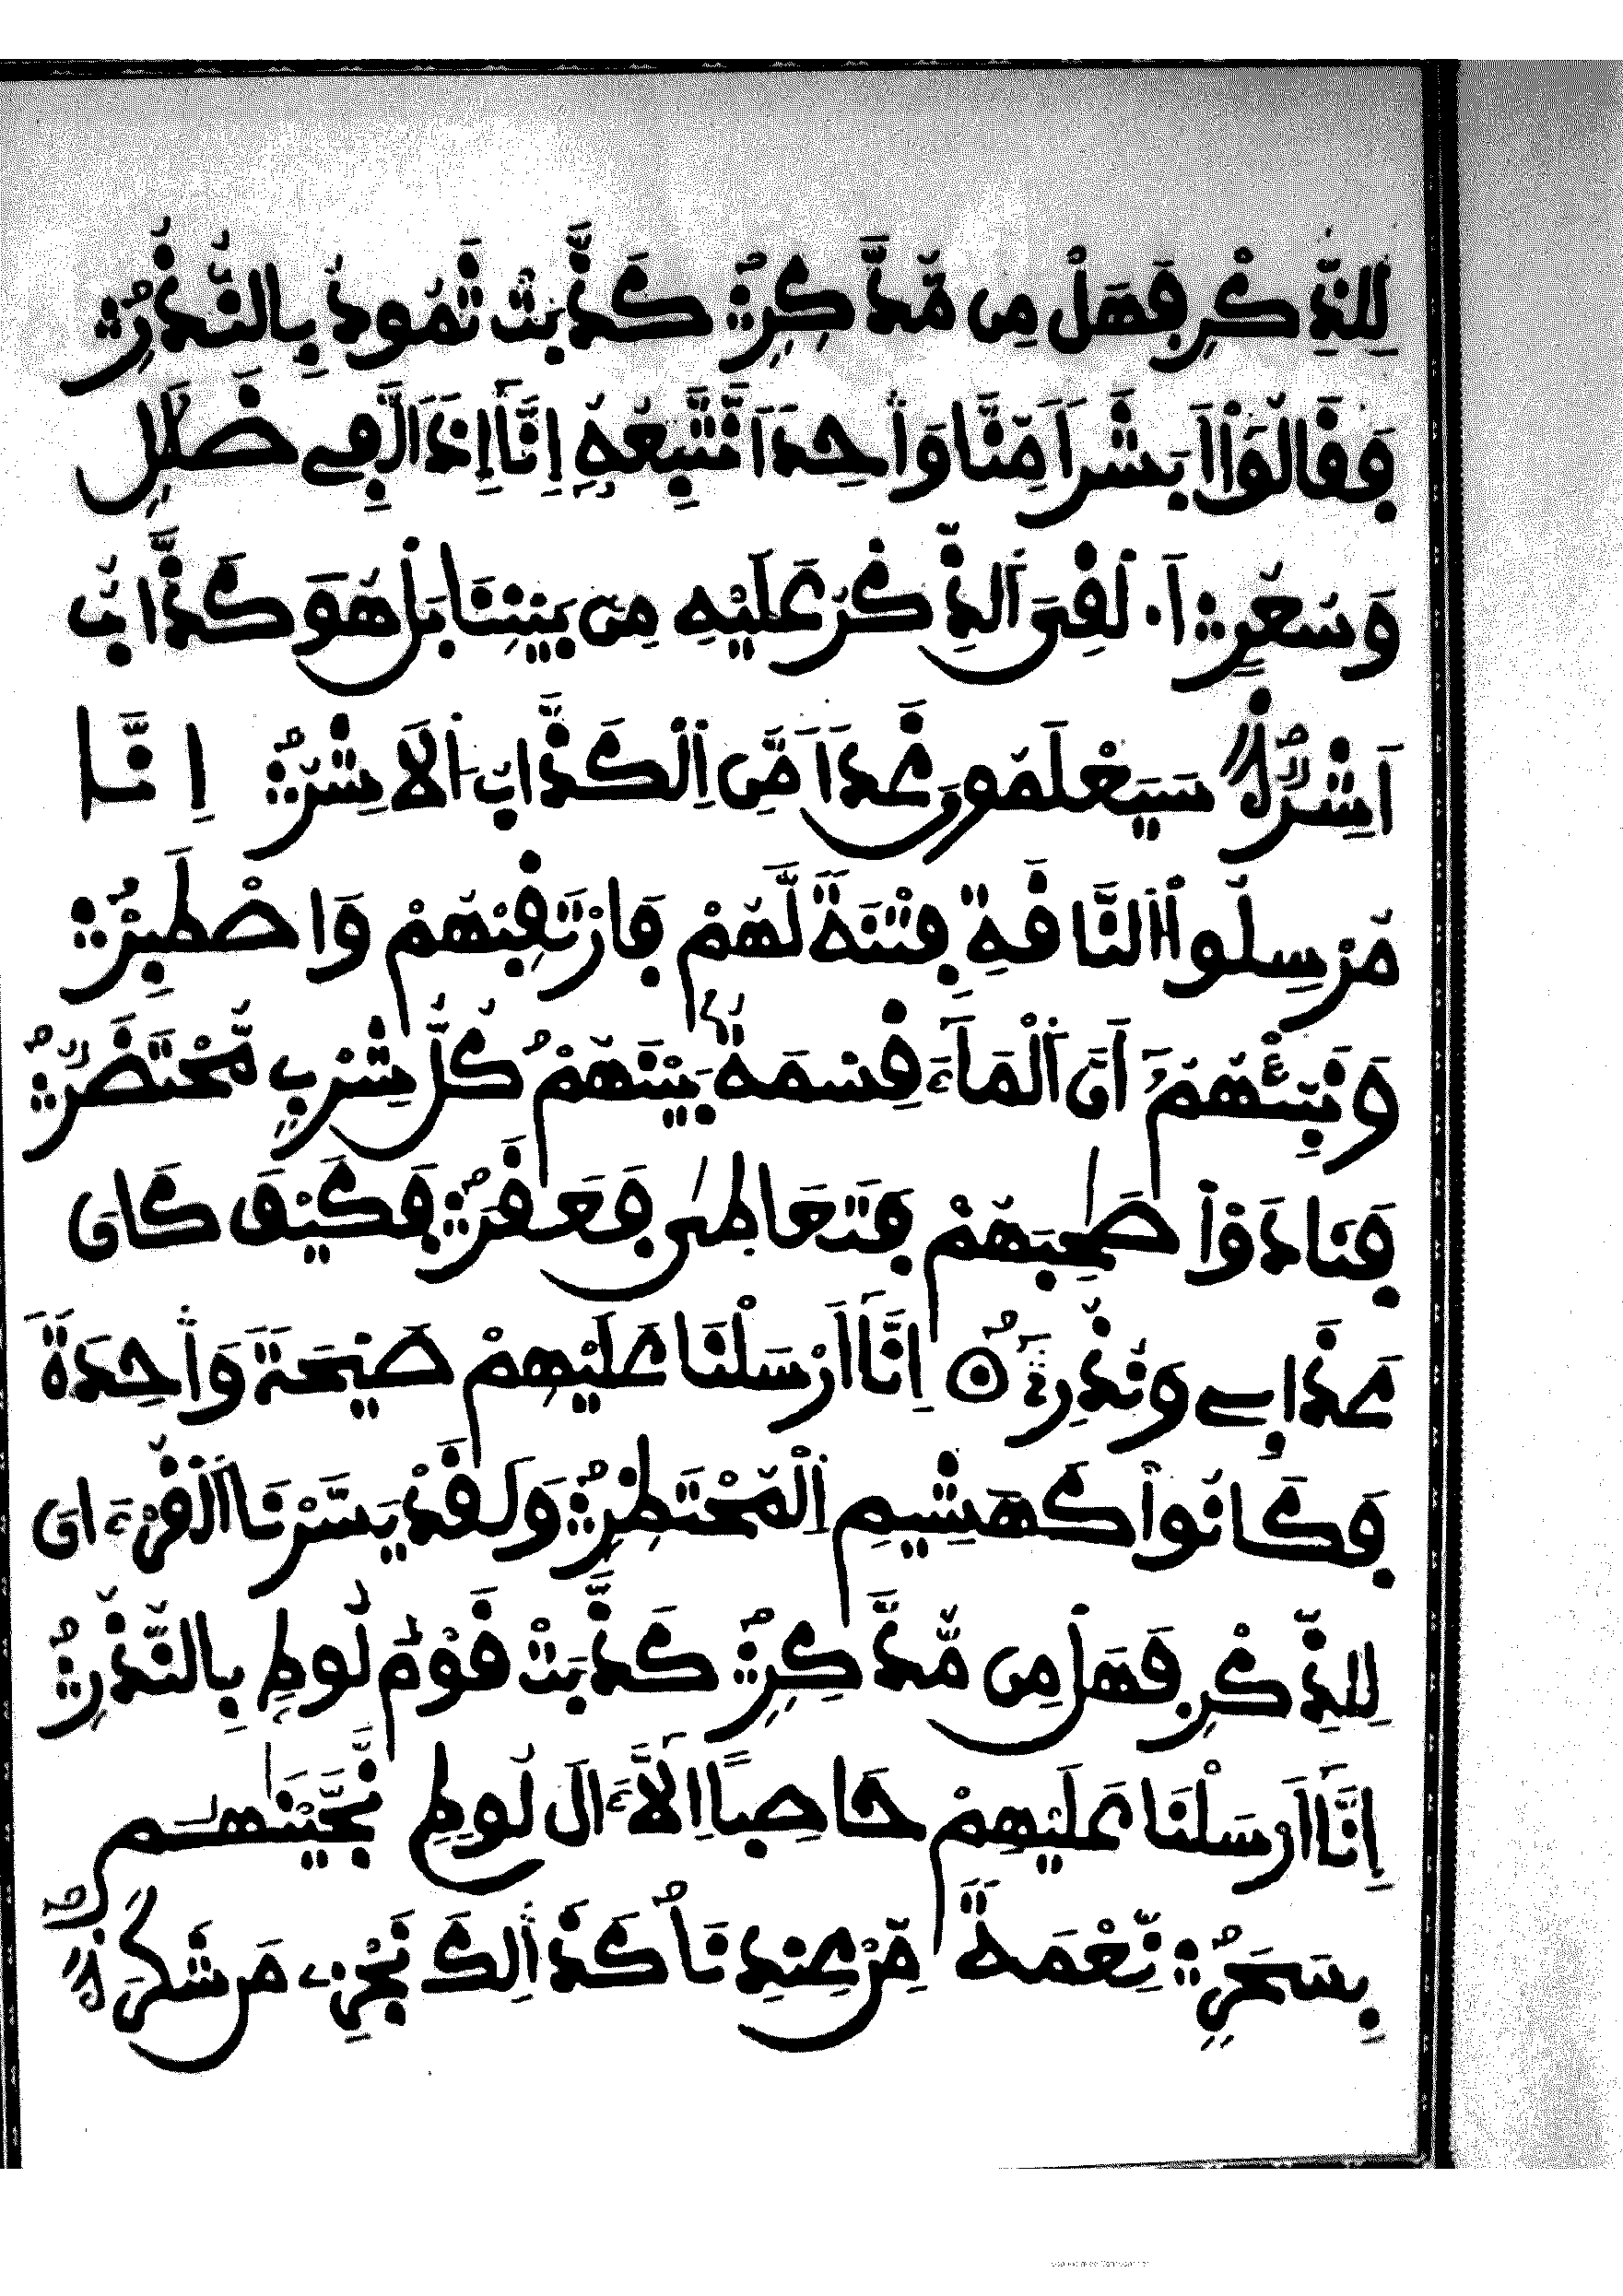 لِلذِّكْرِ فَهَلْ مِن مُّدَّكِرٍ كَذَّبَتْ ثَمُودُ بِالنُّذُرِ
فَقَالُوٓاْ أَبَشَرًا مِّنَّا وَٰحِدًا نَّتَّبِعُهُۥٓ إِنَّآ إِذًا لَّفِے ضَلَٰلٍ
وَسُعُرٍ اَ۟لْقِيَ ٱلذِّكْرُ عَلَيْهِ مِنۢ بَيْنِنَا بَلْ هُوَ كَذَّابٌ
أَشِرٌ سَيَعْلَمُونَ غَدًا مَّنِ ٱلْكَذَّابُ ٱلَاشِرُ إِنَّا
مُرْسِلُواْ ٱلنَّاقَةِ فِتْنَةً لَّهُمْ فَارْتَقِبْهُمْ وَاصْطَبِرْ
وَنَبِّئْهُمُۥٓ أَنَّ ٱلْمَآءَ قِسْمَةٌۢ بَيْنَهُمْ كُلُّ شِرْبٍ مُّحْتَضَرٌ
فَنَادَوْاْ صَٰحِبَهُمْ فَتَعَاطَىٰ فَعَقَرَ فَكَيْفَ كَانَ
عَذَابِے وَنُذُرِۦٓ إِنَّآ أَرْسَلْنَا عَلَيْهِمْ صَيْحَةً وَٰحِدَةً
فَكَانُواْ كَهَشِيمِ ٱلْمُحْتَظِرِ وَلَقَدْ يَسَّرْنَا ٱلْقُرْءَانَ
لِلذِّكْرِ فَهَلْ مِن مُّدَّكِرٍ كَذَّبَتْ قَوْمُ لُوطٍۢ بِالنُّذُرِ
إِنَّآ أَرْسَلْنَا عَلَيْهِمْ حَاصِبًا إِلَّآ ءَالَ لُوطٍ نَّجَّيْنَٰهُم
بِسَحَرٍ نِّعْمَةً مِّنْ عِندِنَا كَذَٰلِكَ نَجْزِے مَن شَكَرَ